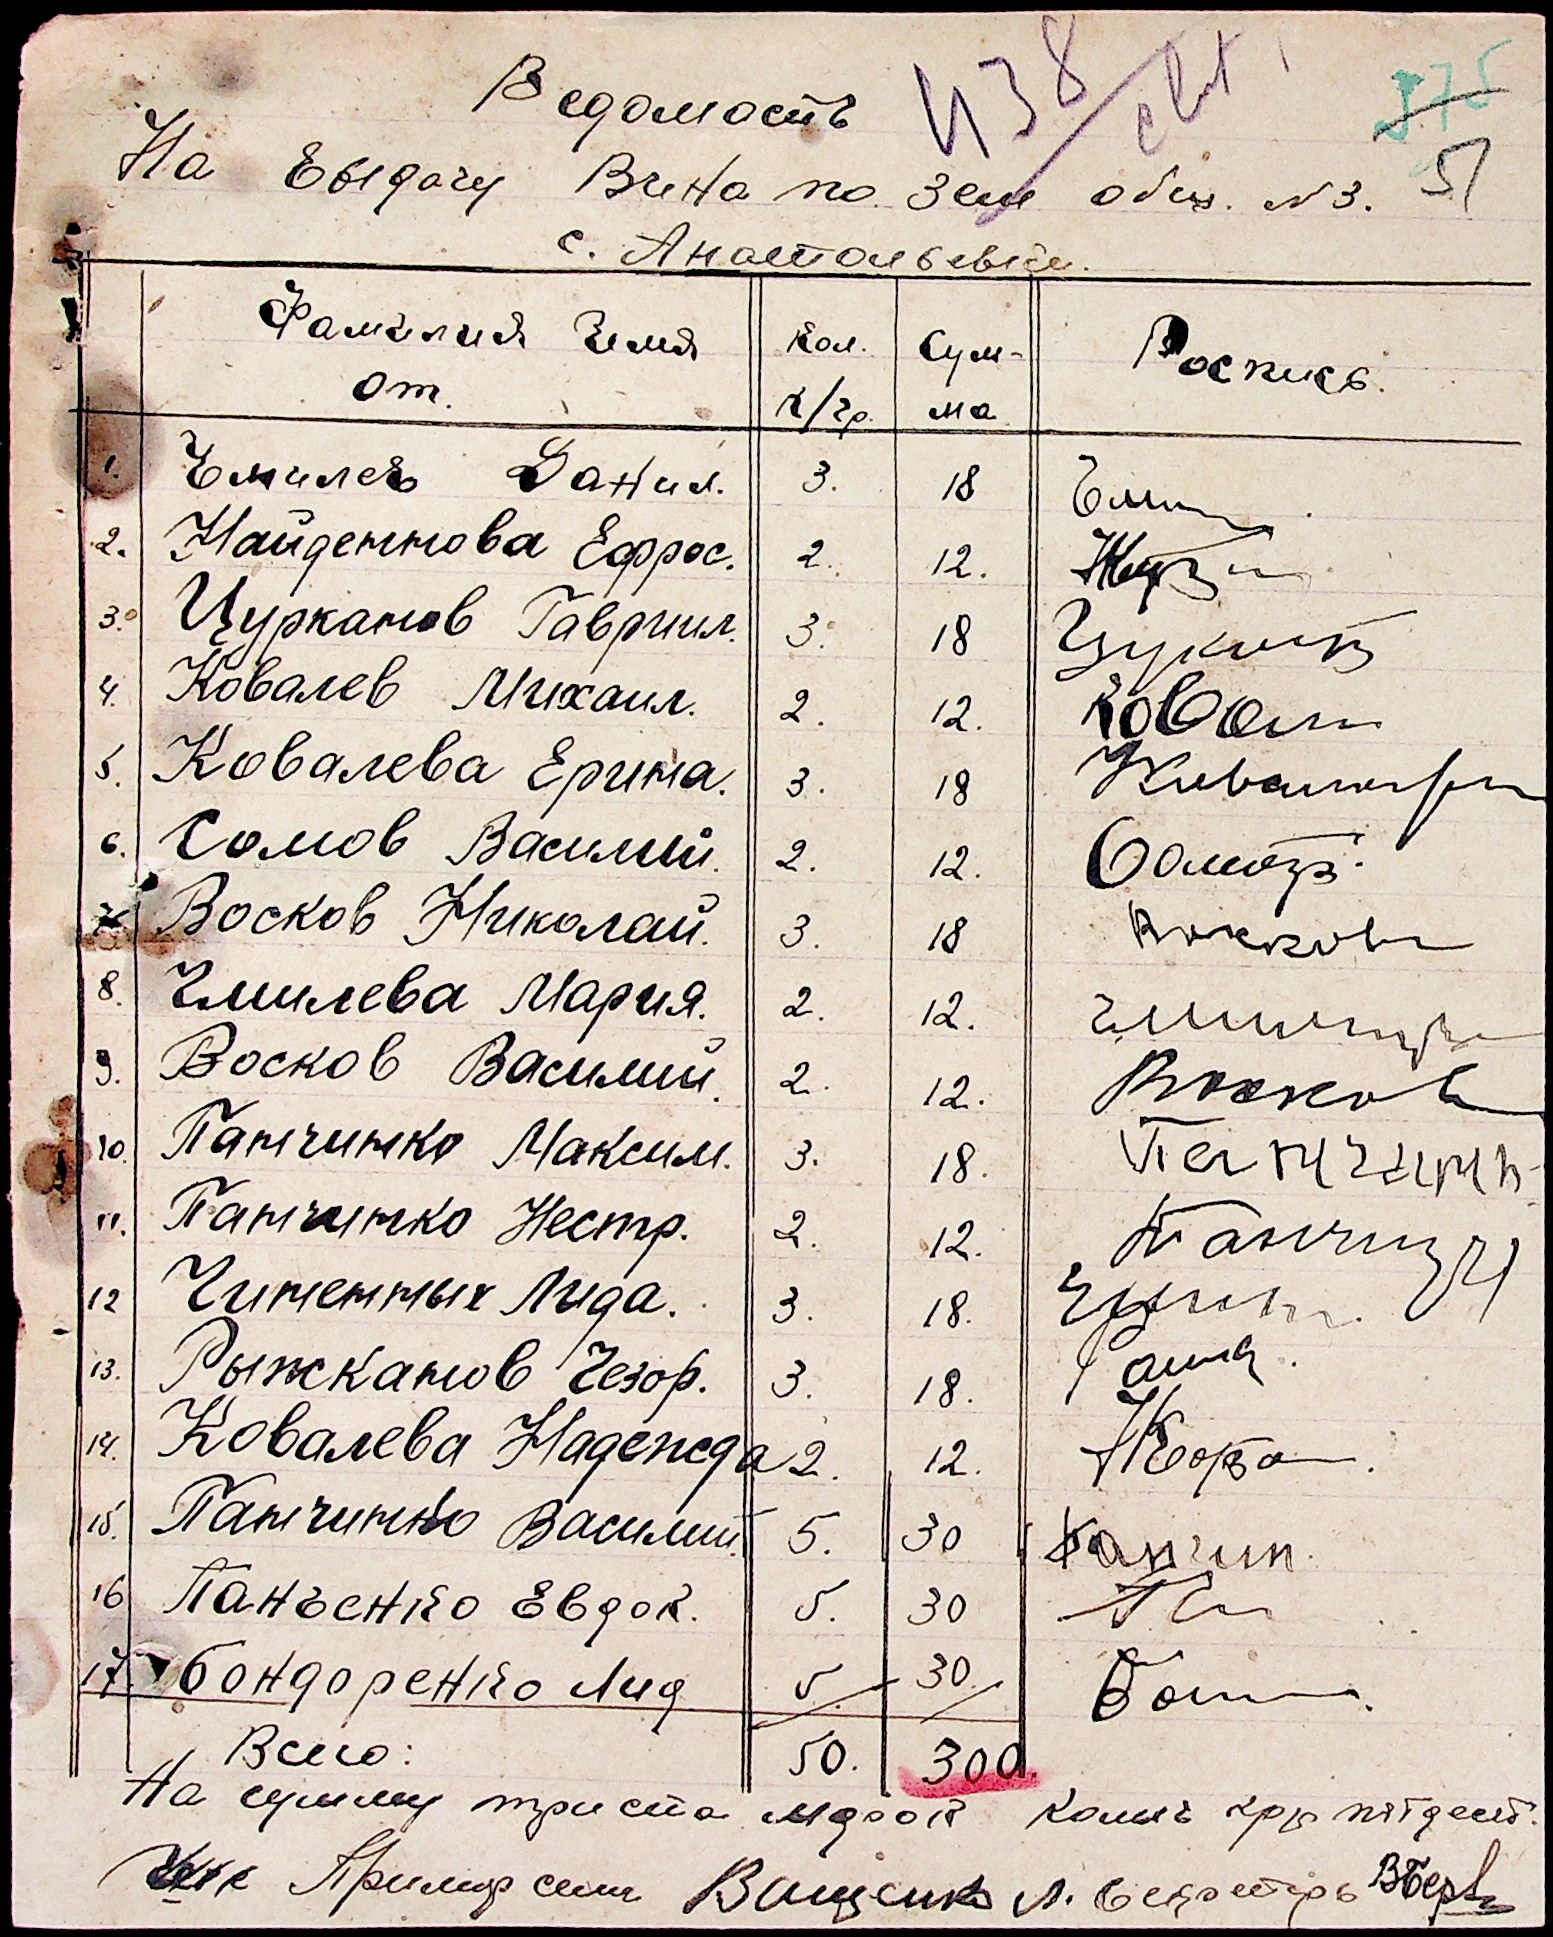 Ведомость
438
375
51
На выдачу Вина по Зем общ. №3.
с. Анатольевки.
Фамилия Имя От. Кол. к/гр. Сумма Роспись.
1. Чмилев Данил. 3. 18 Чми
2. Найденнова Ефрос. 2. 12.
3. Цурканов Гавриил. 3. 18 Цуканов
4. Ковалев Михаил. 2. 12. Ковал
5. Ковалева Ерина. 3. 18 Ковалева
6. Сомов Василий. 2. 12. Сомов
7. Восков Николай. 3. 18 Восков
8. Чмилева Мария. 2. 12. Чмилева
9. Восков Василий. 2. 12. Восков
10. Панчинко Максим. 3. 18. Панчин
11. Панчинко Нестр. 2. 12. Панчин
12 Чиненных Лида. 3. 18.
13. Рыжканов Чезор. 3. 18.
14. Ковалева Надежда 2. 12.
15. Панчинко Василий. 5. 30 Панчин
16 Панченко Евдок. 5. 30
17. Бондоренко Лид 5 30. Бон
Всего: 50. 300.
На сумму триста марок колич кгр пятдесят.
Примар села Ващенко Л. Секретарь ВБерв